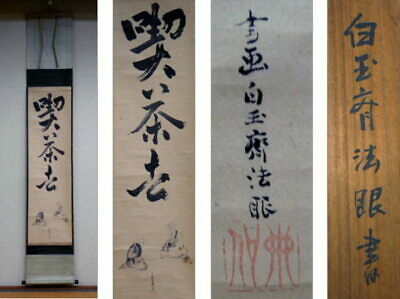 喫茶去
喫茶去
書画白玉斎法眼
白玉斎法眼書